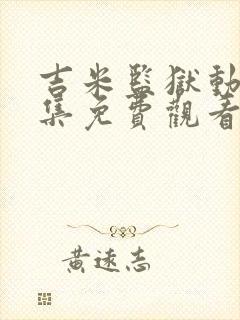 吉米監獄動
集免費觀看
黃遠志